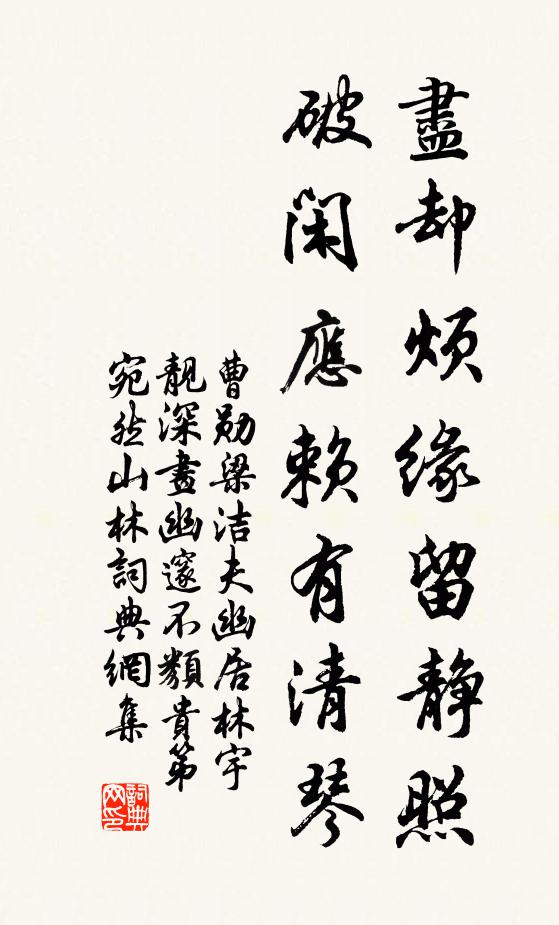 盡却煩緣留靜照
破閑應賴有清琴
曹勛梁洁夫幽居林宇
靚深畫幽邃不類貴第
宛然山林詞典網集
詞典网印